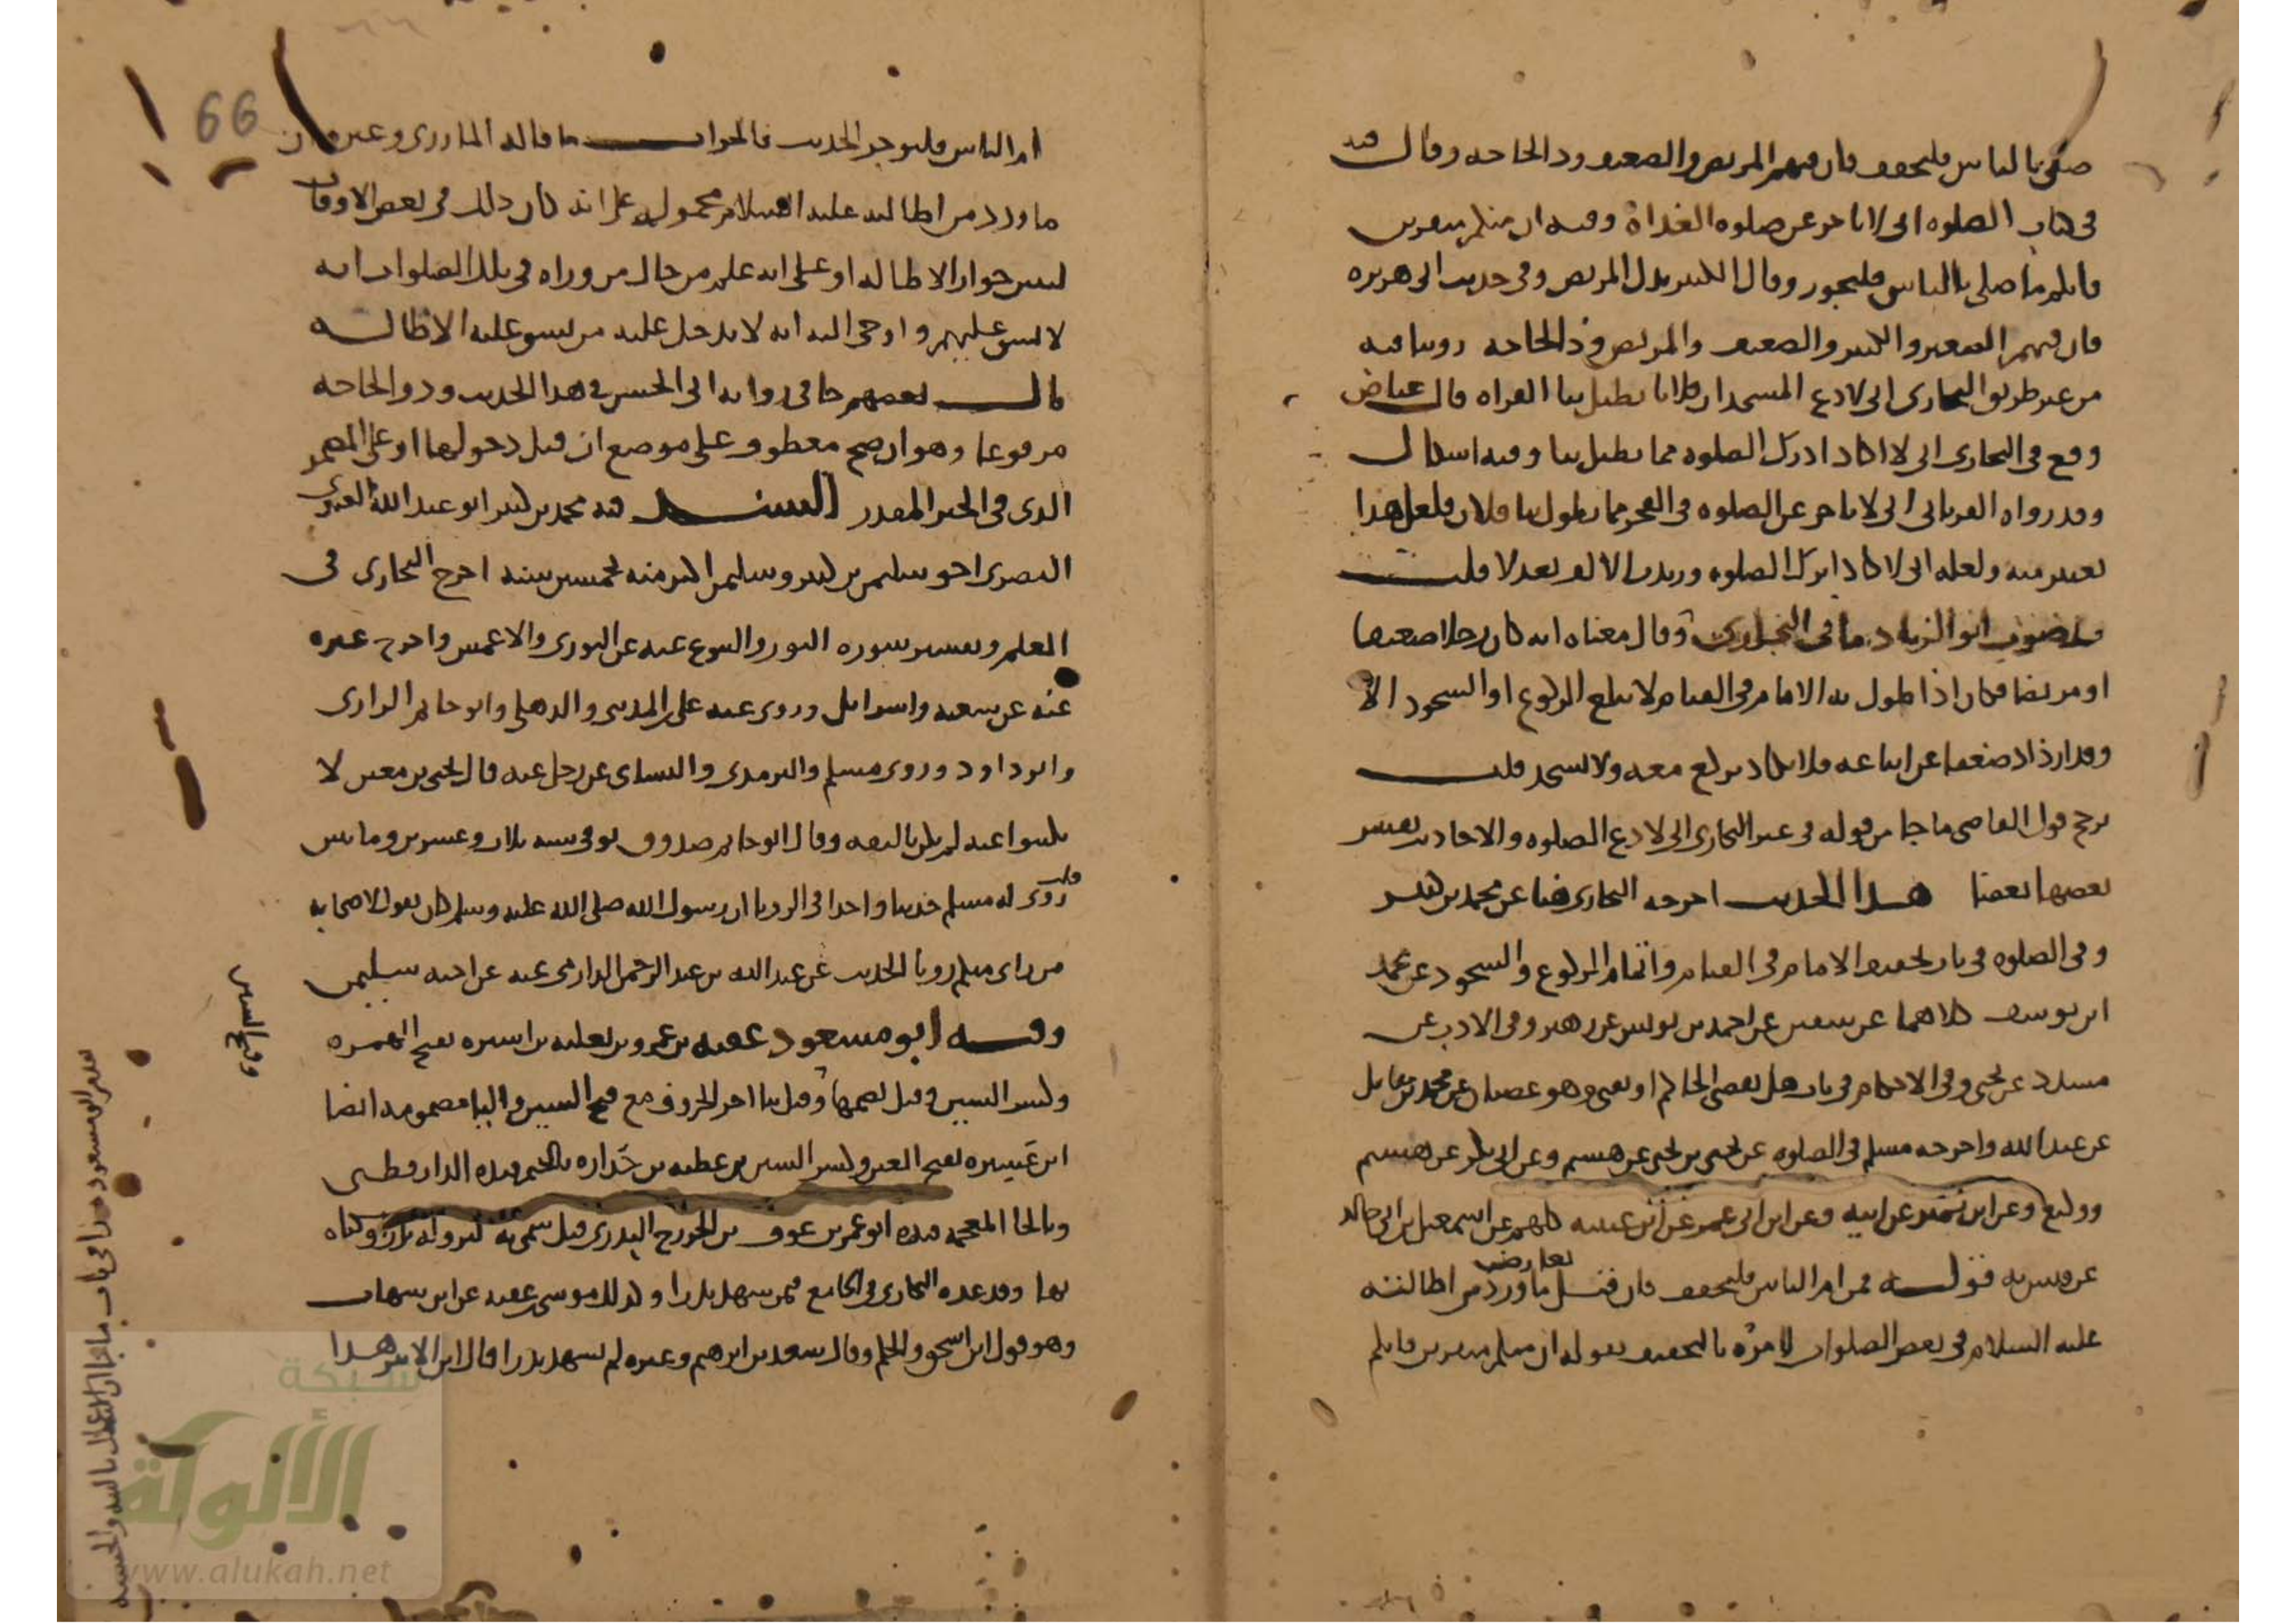 صلى بالناس فليخفف فان فيهم المريض والضعيف وذا الحاجه وقال فيه
في كتاب الصلوه اني لاتاخر عن صلوه الغداة وفيه ان منكم منفرين
فايكم ما صلى بالناس فليتجوز وقال الكبير بدل المريض وفي حديث ابي هريره
فان فيهم الصغير والكبير والضعيف والمريض وذا الحاجه روينا فيه
من غير طريق البخاري اني لادع المسجد ان فلانا يطيل بنا القراه قال عياض
وقع في البخاري اني لا اكاد ادرك الصلوه مما يطيل بنا وفيه اشكال
وقد رواه الفريابي اني لاتاخر عن الصلوه في الفجر مما يطول بنا فلان فلعل هذا
تغيير منه ولعله اني لاكاد اترك الصلوه وزيدت الالف بعد لا قلت
وصوب ابو الزناد ما في البخاري وقال معناه انه كان رجلا ضعيفا
او مريضا فكان اذا طول به الامام في القيام لا يبلغ الركوع او السجود الا
وقد ازداد ضعفا عن اتباعه فلا يكاد يركع معه ولا يسجد قلت
يرجح قول القاضي ما جا من قوله في غير البخاري اني لادع الصلوه والاحاديث يفسر
بعضها بعضا هذا الحديث اخرجه البخاري هنا عن محمد بن كثير
وفي الصلوه في باب تخفيف الامام في القيام واتمام الركوع والسجود عن محمد
ابن يوسف كلاهما عن سفين عن احمد بن يونس عن زهير وفي الادب عن
مسدد عن يحيى وفي الاحكام في باب هل يقضي الحاكم او يفتي وهو غضبان عن محمد بن مقاتل
عن عبد الله واخرجه مسلم في الصلوه عن يحيى بن يحيى عن هشيم وعن ابي بكر عن هشيم
ووكيع وعن ابن نمير عن ابيه وعن ابن ابي عمر عن ابن عيينه كلهم عن اسمعيل بن ابي خالد
عن قيس به قوله فمن ام الناس فليخفف فان قيل تعارض ما ورد من اطالته
عليه السلام في بعض الصلوات لامره بالتخفيف بقوله ان منكم منفرين فايكم
66
ام الناس فليوجز الحديث فالجواب ما قاله المازري وغيره ان
ما ورد من اطالته عليه السلام محمول على انه كان ذلك في بعض الاوقات
ليبين جواز الاطاله او على انه علم من حال من وراه في تلك الصلوات انه
لا يشق عليهم واوحي اليه انه لا يدخل عليه من يشق عليه الاطاله
قال بعضهم جا في روايه ابي الحسن في هذا الحديث وذو الحاجه
مرفوعا وهو ان صح معطوف على موضع ان قبل دخولها او على المضمر
الذي في الخبر المقدر السند فيه محمد بن كثير ابو عبد الله العبدي
البصري اخو سليمن بن كثير وسليمن اكبر منه بخمسين سنه اخرج البخاري في
العلم وتفسير سوره النور والبيوع عنه عن الثوري والاعمش واخرج غيره
عنه عن شعبه واسرائل وروى عنه علي المديني والذهلي وابو حاتم الرازي
وابو داود وروى مسلم والترمذي والنساي عن رجل عنه قال يحيى بن معين لا
تكتبوا عنه لم يكن بالثقه وقال ابو حاتم صدوق توفي سنه ثلاث وعشرين ومايتين
قلت روى له مسلم حديثا واحدا في الرويا ان رسول الله صلى الله عليه وسلم كان يقول لاصحابه
من راى منكم رويا الحديث عن عبد الله بن عبد الرحمن الدارمي عنه عن اخيه سليمن
وفيه ابو مسعود عقبه بن عمرو بن ثعلبه بن اسيره بفتح الهمزه
وكسر السين وقيل بضمها وقيل بيا اخر الحروف مع فتح السين واليا مضمومه ايضا
ابن عَسِيره بفتح العين وكسر السين بن عطيه بن خداره بالجيم قيده الدارقطني
وبالخا المعجمه قيده ابو عمر بن عوف بن الخزرج البدري قيل سمي به لنزوله بدر وسكناه
بها وقد عده البخاري في الجامع فيمن شهد بدرا وكذلك موسى بن عقبه عن ابن شهاب
وهو قول ابن اسحق والحكم وقال سعد بن ابرهيم وغيره لم يشهد بدرا قال ابن الاثير هذا
وفتح السين
ابو مسعود هذا في باب ما جا ان الاعمال بالنيه والحسبه
شبكة
الألوكة
www.alukah.net